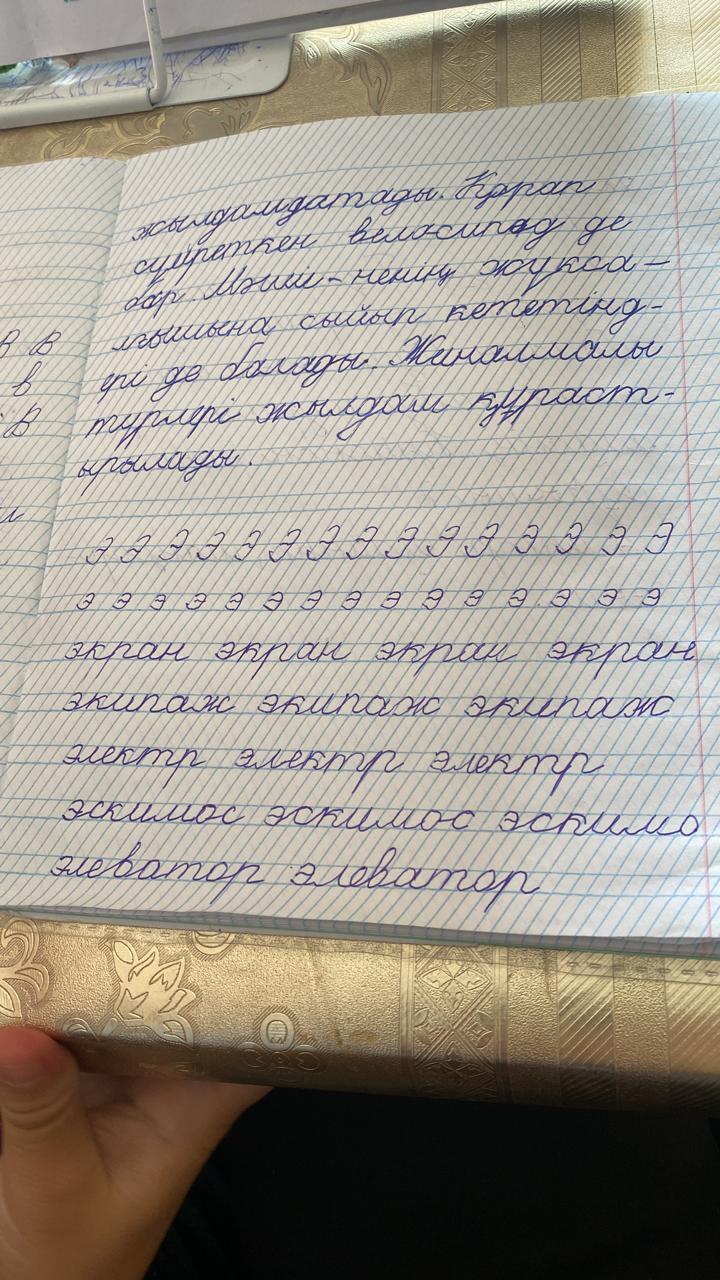 жылдамдатады. Қорап
сүйреткен велосипед де
бар. Мәши-ненің жүкса-
лғышына сыйып кететінд-
ері де болады. Жиналмалы
түрлері жылдам құраст-
ырылады.
Э Э Э Э Э Э Э Э Э Э Э Э Э Э Э
э э э э э э э э э э э э э э э
экран экран экран экран
экипаж экипаж экипаж
электр электр электр
эскимос эскимос эскимо
элеватор элеватор
В В
в
В